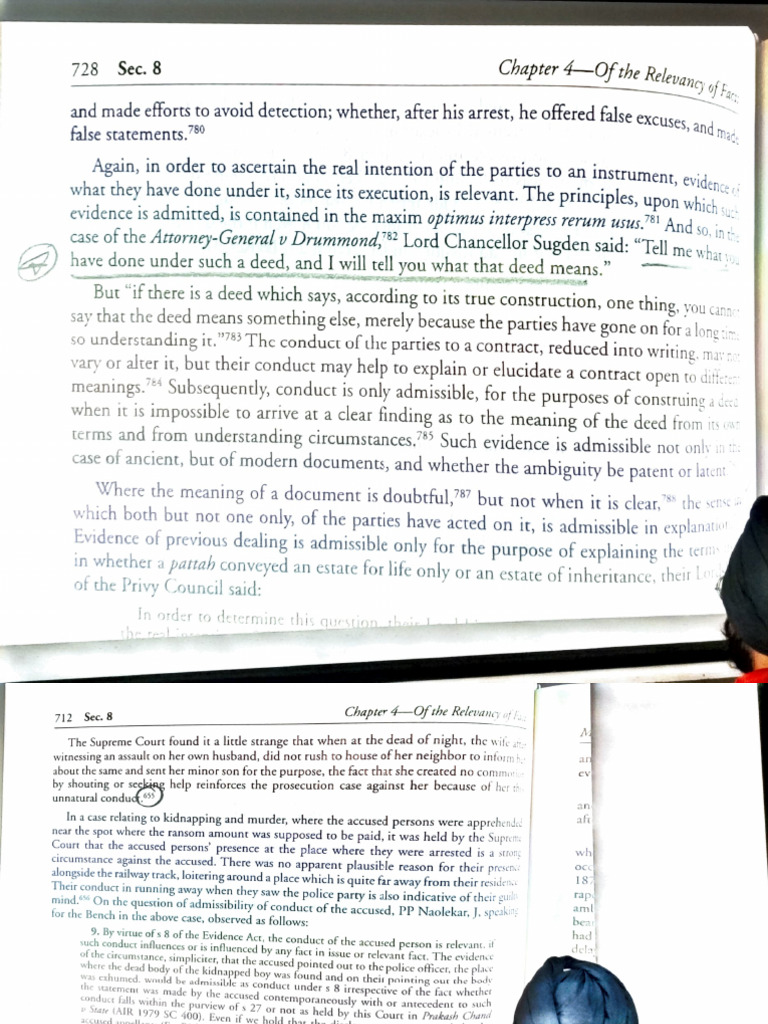 728 Sec. 8 Chapter 4—Of the Relevancy of
and made efforts to avoid detection; whether, after his arrest, he offered false excuses, and
false statements.780
Again, in order to ascertain the real intention of the parties to an instrument, evidence
what they have done under it, since its execution, is relevant. The principles, upon which
evidence is admitted, is contained in the maxim optimus interpress rerum usus.781 And so, in
case of the Attorney-General v Drummond,782 Lord Chancellor Sugden said: “Tell me what
have done under such a deed, and I will tell you what that deed means.”
But “if there is a deed which says, according to its true construction, one thing, you
say that the deed means something else, merely because the parties have gone on for a long
so understanding it.”783 The conduct of the parties to a contract, reduced into writing, may
vary or alter it, but their conduct may help to explain or elucidate a contract open to
meanings.784 Subsequently, conduct is only admissible, for the purposes of construing a
when it is impossible to arrive at a clear finding as to the meaning of the deed from its
terms and from understanding circumstances.785 Such evidence is admissible not only in
case of ancient, but of modern documents, and whether the ambiguity be patent or latent
Where the meaning of a document is doubtful,787 but not when it is clear,788 the sense
which both but not one only, of the parties have acted on it, is admissible in
Evidence of previous dealing is admissible only for the purpose of explaining the
in whether a pattah conveyed an estate for life only or an estate of inheritance, their
of the Privy Council said:
In order to determine this question, their
712 Sec. 8 Chapter 4—Of the Relevancy of
The Supreme Court found it a little strange that when at the dead of night, the wife
witnessing an assault on her own husband, did not rush to house of her neighbor to inform
about the same and sent her minor son for the purpose, the fact that she created no
by shouting or seeking help reinforces the prosecution case against her because of her
unnatural conduct.655
In a case relating to kidnapping and murder, where the accused persons were apprehended
near the spot where the ransom amount was supposed to be paid, it was held by the Supreme
Court that the accused persons' presence at the place where they were arrested is a strong
circumstance against the accused. There was no apparent plausible reason for their presence
alongside the railway track, loitering around a place which is quite far away from their
Their conduct in running away when they saw the police party is also indicative of their guilty
mind.656 On the question of admissibility of conduct of the accused, PP Naolekar, J. speaking
for the Bench in the above case, observed as follows:
9. By virtue of s 8 of the Evidence Act, the conduct of the accused person is relevant, if
such conduct influences or is influenced by any fact in issue or relevant fact. The evidence
of the circumstance, simpliciter, that the accused pointed out to the police officer, the place
where the dead body of the kidnapped boy was found and on their pointing out the body
was exhumed, would be admissible as conduct under s 8 irrespective of the fact whether
the statement was made by the accused contemporaneously with or antecedent to such
conduct falls within the purview of s 27 or not as held by this Court in Prakash Chand
v State (AIR 1979 SC 400). Even if we hold that the
an
ev
an
aft
wh
occ
187
rap
aml
bea
had
dela